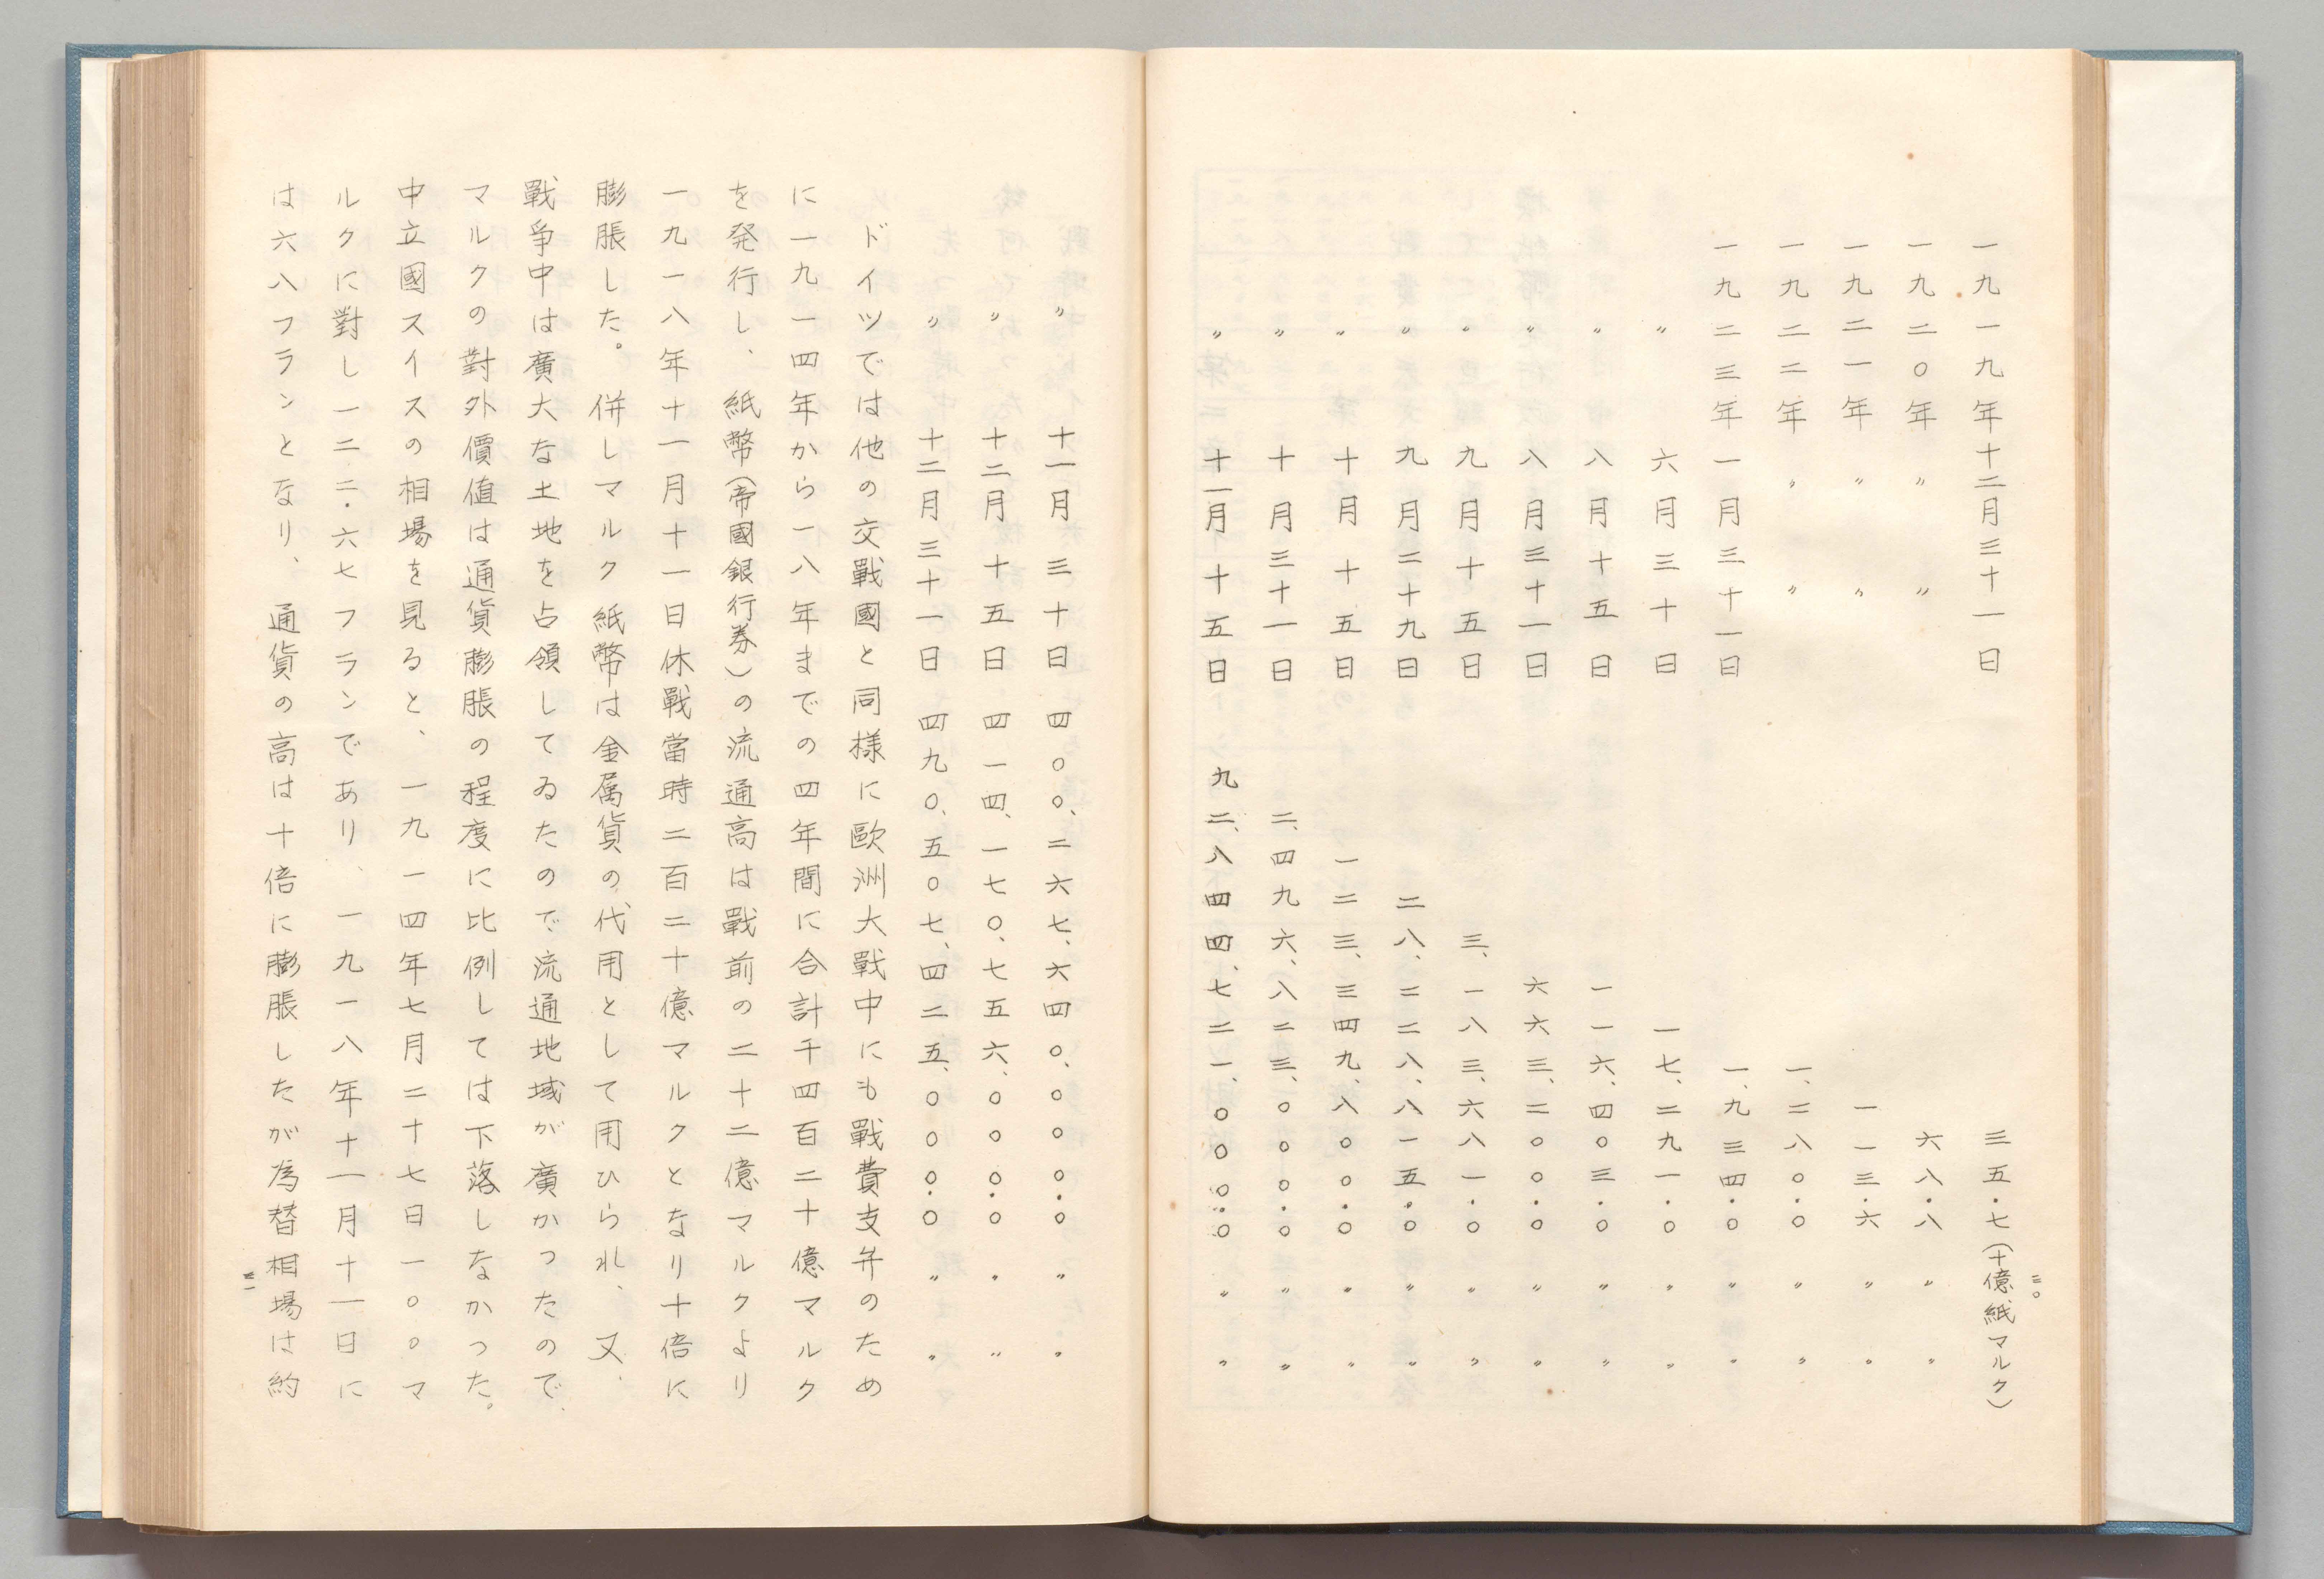 三〇
一九一九年十二月三十一日 三五・七(十億紙マルク)
一九二〇年 〃 〃 六八・八 〃 〃
一九二一年 〃 〃 一一三・六 〃 〃
一九二二年 〃 〃 一、二八〇・〇 〃 〃
一九二三年 一月三十一日 一、九三四・〇 〃 〃
〃 六月三十日 一七、二九一・〇 〃 〃
〃 八月十五日 一一六、四〇三・〇 〃 〃
〃 八月三十一日 六六三、二〇〇・〇 〃 〃
〃 九月十五日 三、一八三、六八一・〇 〃 〃
〃 九月二十九日 二八、二二八、八一五・〇 〃 〃
〃 十月十五日 一二三、三四九、八〇〇・〇 〃 〃
〃 十月三十一日 二、四九六、八二三、〇〇〇・〇 〃 〃
〃 十一月十五日 九二、八四四、七二一、〇〇〇・〇 〃 〃
〃 十一月三十日 四〇〇、二六七、六四〇、〇〇〇・〇 〃 〃
〃 十二月十五日 四一四、一七〇、七五六、〇〇〇・〇 〃 〃
〃 十二月三十一日 四九〇、五〇七、四二五、〇〇〇・〇 〃 〃
ドイツでは他の交戰國と同様に歐洲大戰中にも戰費支弁のため
に一九一四年から一八年までの四年間に合計千四百二十億マルク
を発行し、紙幣(帝國銀行券)の流通高は戰前の二十二億マルクより
一九一八年十一月十一日休戰當時二百二十億マルクとなり十倍に
膨脹した。併しマルク紙幣は金属貨の代用として用ひられ、又、
戰爭中は廣大な土地を占領してゐたので流通地域が廣かったので、
マルクの對外價値は通貨膨脹の程度に比例しては下落しなかった。
中立國スイスの相場を見ると、一九一四年七月二十七日一〇〇マ
ルクに對し一二二・六七フランであり、一九一八年十一月十一日に
は六八フランとなり、通貨の高は十倍に膨脹したが為替相場は約
三一